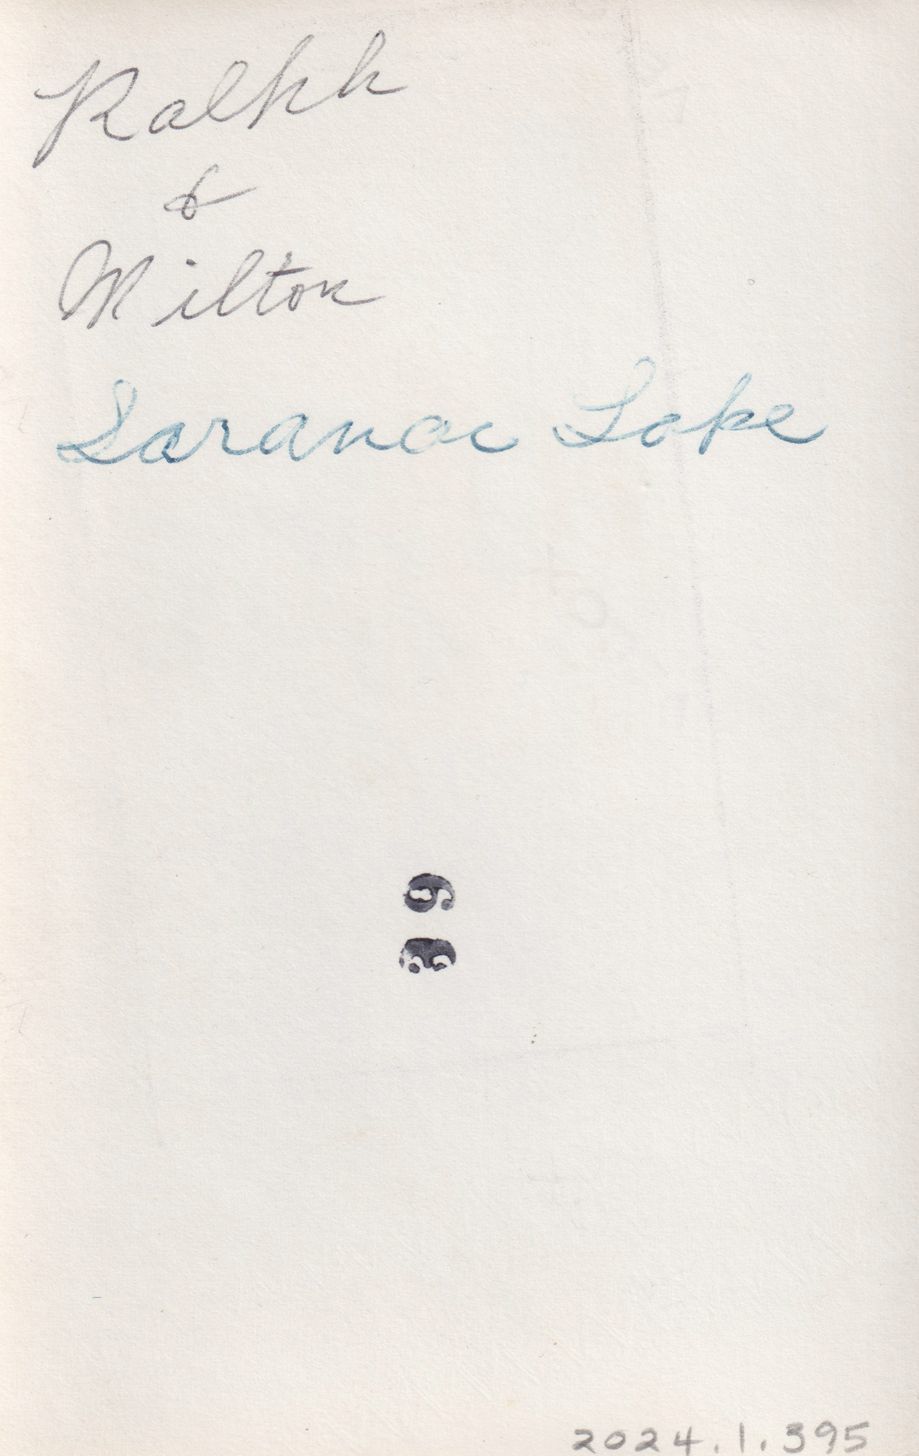 Ralph
&
Milton
Saranac Lake
39
2024.1.395